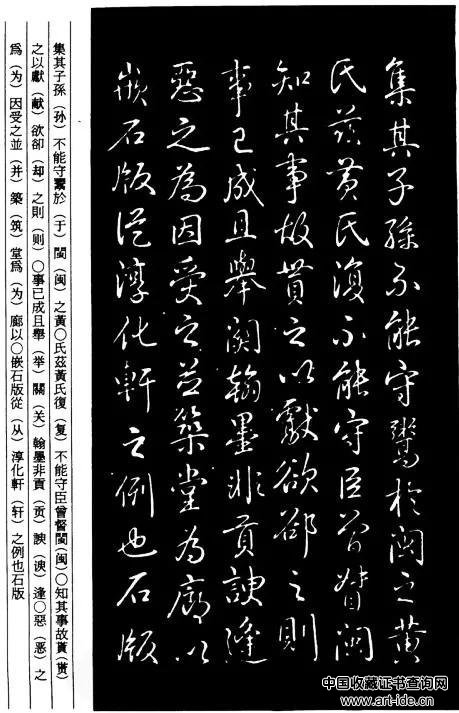 集其子孫不能守鬻於閩之黃
氏茲黃氏復不能守臣曾督閩
知其事故貰之以獻欲卻之則
事已成且舉關翰墨非貢諛逢
惡之為因受之並築堂為廊以
嵌石版從淳化軒之例也石版
集其子孫（孙）不能守鬻於（于）閩（闽）之黃○氏茲黃氏復（复）不能守臣曾督閩（闽）○知其事故貰（贳）
之以獻（献）欲卻（却）之則（则）○事已成且舉（举）關（关）翰墨非貢（贡）諛（谀）逢○惡（恶）之
爲（为）因受之並（并）築（筑）堂爲（为）廊以○嵌石版從（从）淳化軒（轩）之例也石版
中国收藏证书查询网
www.art-ide.cn